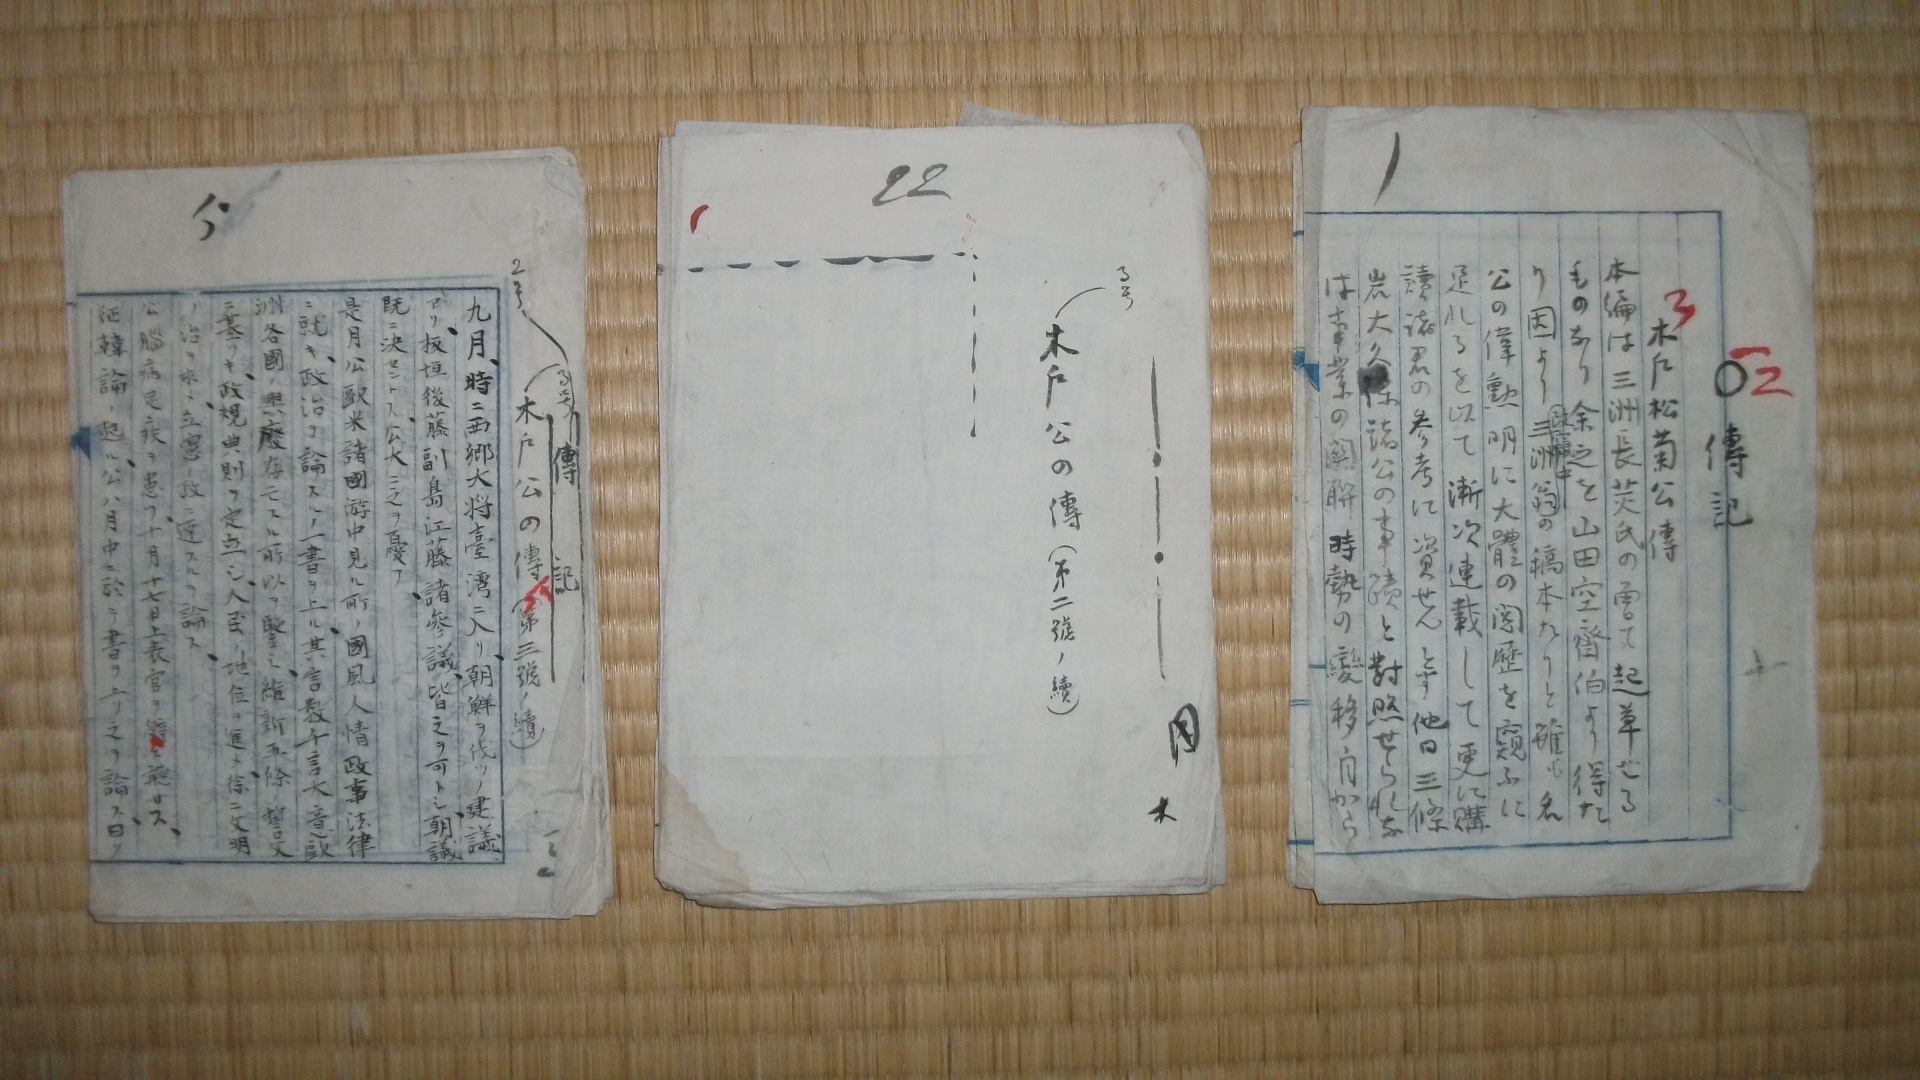 傳記
木戸松菊公傳
本編は三洲長炗氏の曽て起草せる
ものなり余之を山田空齋伯より得た
り因より三洲翁の稿本たりと雖も名
公の偉勳明に大體の閲歴を窺ふに
足れるを以て漸次連載して更に購
讀諸君の参考に資せんとす他日三條
岩大久保諸公の事蹟と對照せられな
は事業の関聯時勢の變移自から
1
02
3
22
3号
木戸公の傳(第二號ノ續)
木
2号
3号
傳記
木戸公の傳(第三號ノ續)
九月、時ニ西郷大将臺湾ニ入リ朝鮮ヲ伐ツノ建議
アリ、板垣後藤副島江藤諸參議、皆之ヲ可トシ、朝議
既ニ決セントス、公大ニ之ヲ憂フ、
是月公歐米諸國游中見ル所ノ國風人情政事法律
ニ就キ、政治ヲ論スルノ一書ヲ上ル、其言数千言大意歐
洲各國ノ興廢存亡スル所以ヲ鑒ミ、維新五條ノ誓文
ニ基ツキ、政規典則ヲ定立シ、人民ノ地位ヲ進ト、徐ニ文明
ノ治ヲ求ニ立憲ノ政ニ達スルヲ論ス、
公腦病足ニ疾ヲ患フ、十月十七日上表官ヲ辞ス
征韓論ノ起ル、公八月中ニ於テ書ヲ上リ之ヲ論ス、曰ク